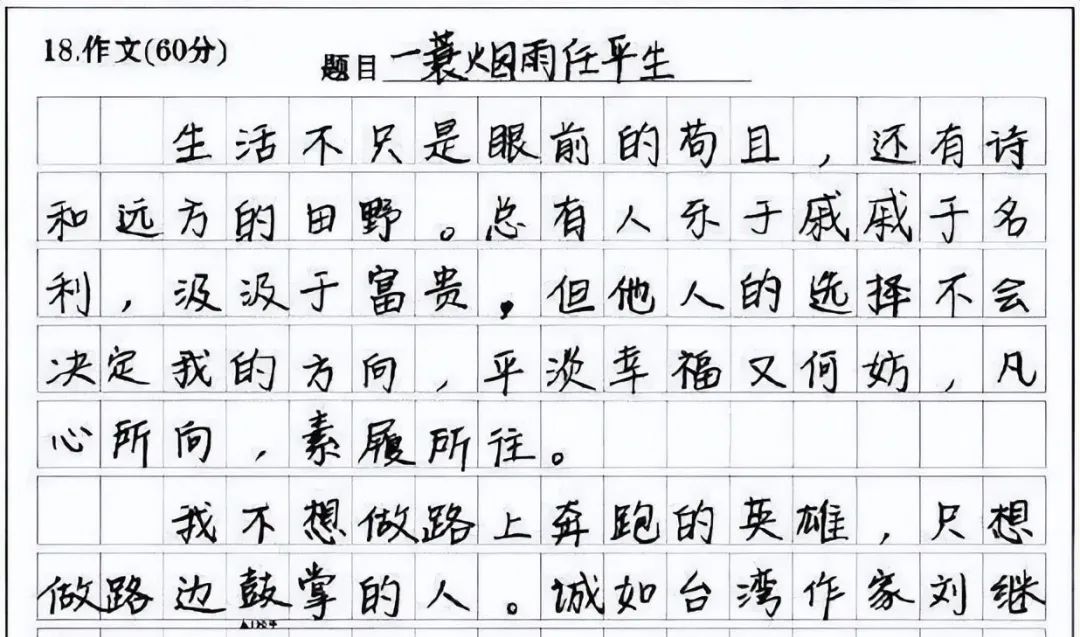 18.作文(60分)
题目 一蓑烟雨任平生
生活不只是眼前的苟且，还有诗
和远方的田野。总有人乐于戚戚于名
利，汲汲于富贵，但他人的选择不会
决定我的方向，平淡幸福又何妨，凡
心所向，素履所往。
我不想做路上奔跑的英雄，只想
做路边鼓掌的人。城如台湾作家刘继